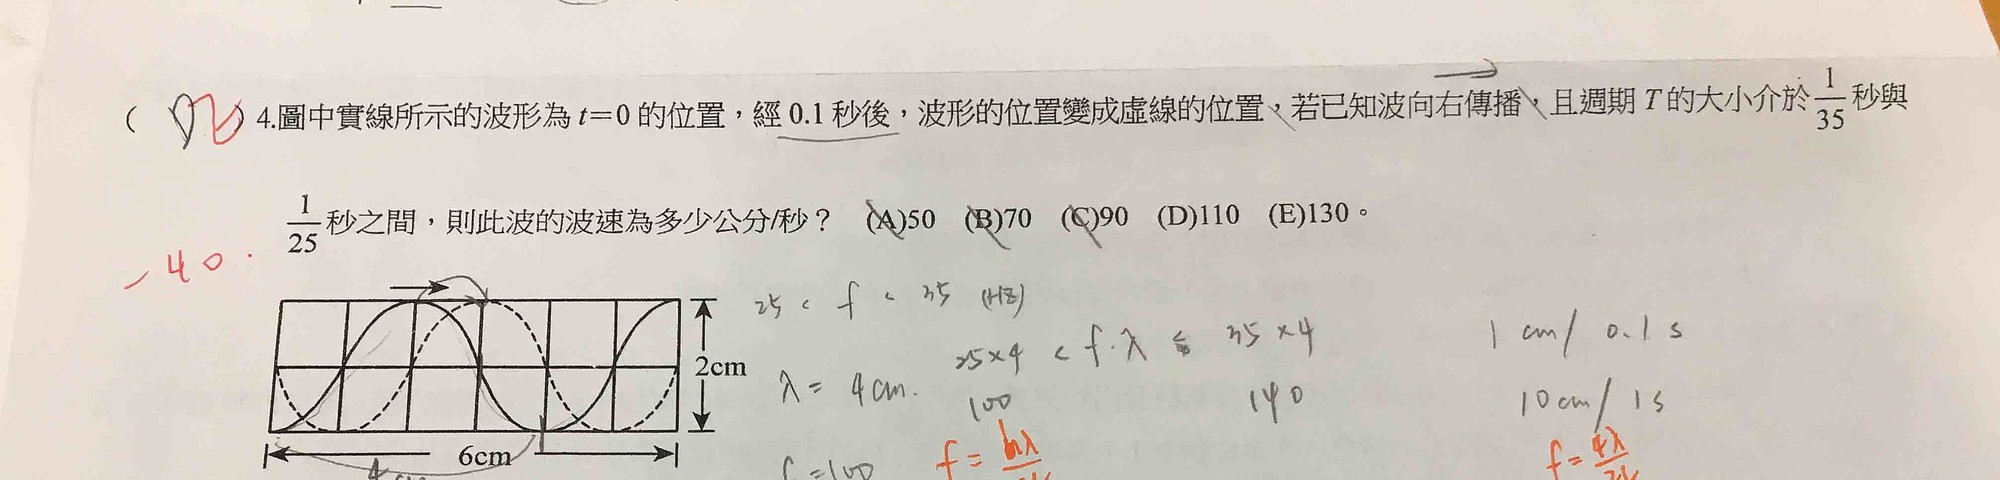 ( ) 4.圖中實線所示的波形為 t=0 的位置，經 0.1 秒後，波形的位置變成虛線的位置、若已知波向右傳播，且週期 T 的大小介於 1/35 秒與
1/25 秒之間，則此波的波速為多少公分/秒？ (A)50 (B)70 (C)90 (D)110 (E)130。
-40.
25 < f < 35 (HZ)
25×4 < f·λ ≤ 35×4
1 cm/ 0.1 s
2cm
λ = 4cm.
100
140
10cm/ 1s
6cm
4
=100
f =
f = 4λ